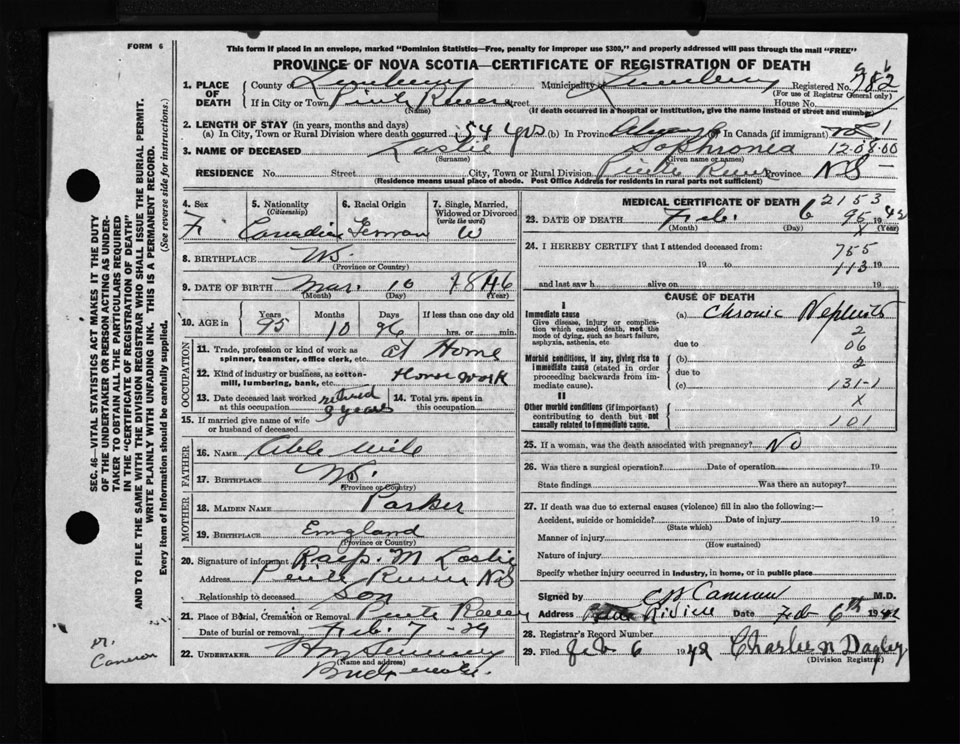 FORM 6
This form if placed in an envelope, marked "Dominion Statistics—Free, penalty for improper use $300," and properly addressed will pass through the mail "FREE"
PROVINCE OF NOVA SCOTIA—CERTIFICATE OF REGISTRATION OF DEATH
1. PLACE OF DEATH
County of Municipality Registered No. 982
(For use of Registrar General only)
If in City or Town Street House No.
(Name) (If death occurred in a hospital or institution, give the name instead of street and number)
2. LENGTH OF STAY (in years, months and days)
(a) In City, Town or Rural Division where death occurred 54 yrs (b) In Province Always (c) In Canada (if immigrant)
3. NAME OF DECEASED Sophronia 12-08-00
(Surname) (Given name or names)
RESIDENCE No. Street City, Town or Rural Division Province NS
(Residence means usual place of abode. Post Office Address for residents in rural parts not sufficient)
4. Sex F
5. Nationality (Citizenship) Canadian
6. Racial Origin German
7. Single, Married, Widowed or Divorced (write the word) W
8. BIRTHPLACE NS
(Province or Country)
9. DATE OF BIRTH Mar. 10 1846
(Month) (Day) (Year)
10. AGE in Years Months Days If less than one day old
95 10 26 hrs. or min.
OCCUPATION
11. Trade, profession or kind of work as spinner, teamster, office clerk, etc. at Home
12. Kind of industry or business, as cotton-mill, lumbering, bank, etc. House work
13. Date deceased last worked at this occupation retired 9 years
14. Total yrs. spent in this occupation
15. If married give name of wife or husband of deceased
FATHER
16. NAME Able
17. BIRTHPLACE NS.
(Province or Country)
MOTHER
18. MAIDEN NAME Parker
19. BIRTHPLACE England
(Province or Country)
20. Signature of informant
Address NS
Relationship to deceased Son
21. Place of Burial, Cremation or Removal
Date of burial or removal Feb. 7 -
22. UNDERTAKER
(Name and address)
MEDICAL CERTIFICATE OF DEATH
2153
23. DATE OF DEATH Feb. 6 1942
95 X
(Month) (Day) (Year)
24. I HEREBY CERTIFY that I attended deceased from:
755
19 to 113 19
and last saw h alive on 19
CAUSE OF DEATH
I
Immediate cause (a) Chronic Nephritis
Give disease, injury or complication which caused death, not the mode of dying, such as heart failure, asphyxia, asthenia, etc.
2
due to 06
Morbid conditions, if any, giving rise to immediate cause (stated in order proceeding backwards from immediate cause).
(b) 2
due to
(c) 131-1
II X
Other morbid conditions (if important) contributing to death but not causally related to immediate cause.
101
25. If a woman, was the death associated with pregnancy? NO
26. Was there a surgical operation? Date of operation 19
State findings Was there an autopsy?
27. If death was due to external causes (violence) fill in also the following:—
Accident, suicide or homicide? Date of injury 19
(State which)
Manner of injury
(How sustained)
Nature of injury
Specify whether injury occurred in industry, in home, or in public place
Signed by Cameron M.D.
Address Date Feb 6th 1942
28. Registrar's Record Number
29. Filed Feb 6 1942 Charles N Dagley
(Division Registrar)
SEC. 46—VITAL STATISTICS ACT MAKES IT THE DUTY
OF THE UNDERTAKER OR PERSON ACTING AS UNDER-
TAKER TO OBTAIN ALL THE PARTICULARS REQUIRED
IN THE "CERTIFICATE OF REGISTRATION OF DEATH"
AND TO FILE THE SAME WITH THE DIVISION REGISTRAR WHO SHALL ISSUE THE BURIAL PERMIT.
WRITE PLAINLY WITH UNFADING INK. THIS IS A PERMANENT RECORD.
Every item of Information should be carefully supplied. (See reverse side for instructions.)
Cameron